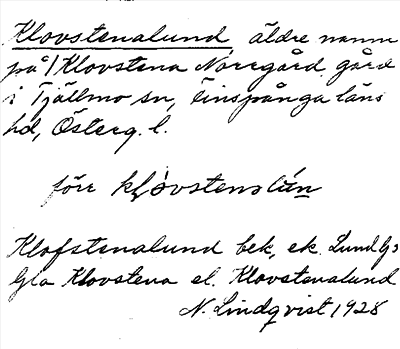 Klovstenalund, äldre namn
på 1 Klovstena Norrgård, gård
i Tjällmo sn, Finspånga läns
hd, Österg. l.
förr
Klofstenalund bek, ek. Lundbg
Gla Klovstena el. Klovstenalund
N. Lindqvist 1928